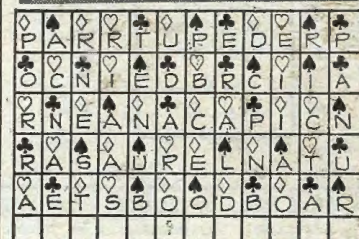 P A R R T U P E D E R P
O C N I E D B R C I I A
R N E A N A C A P I C N
R A S A U R E L N A T U
A E T S B O O D B O A R